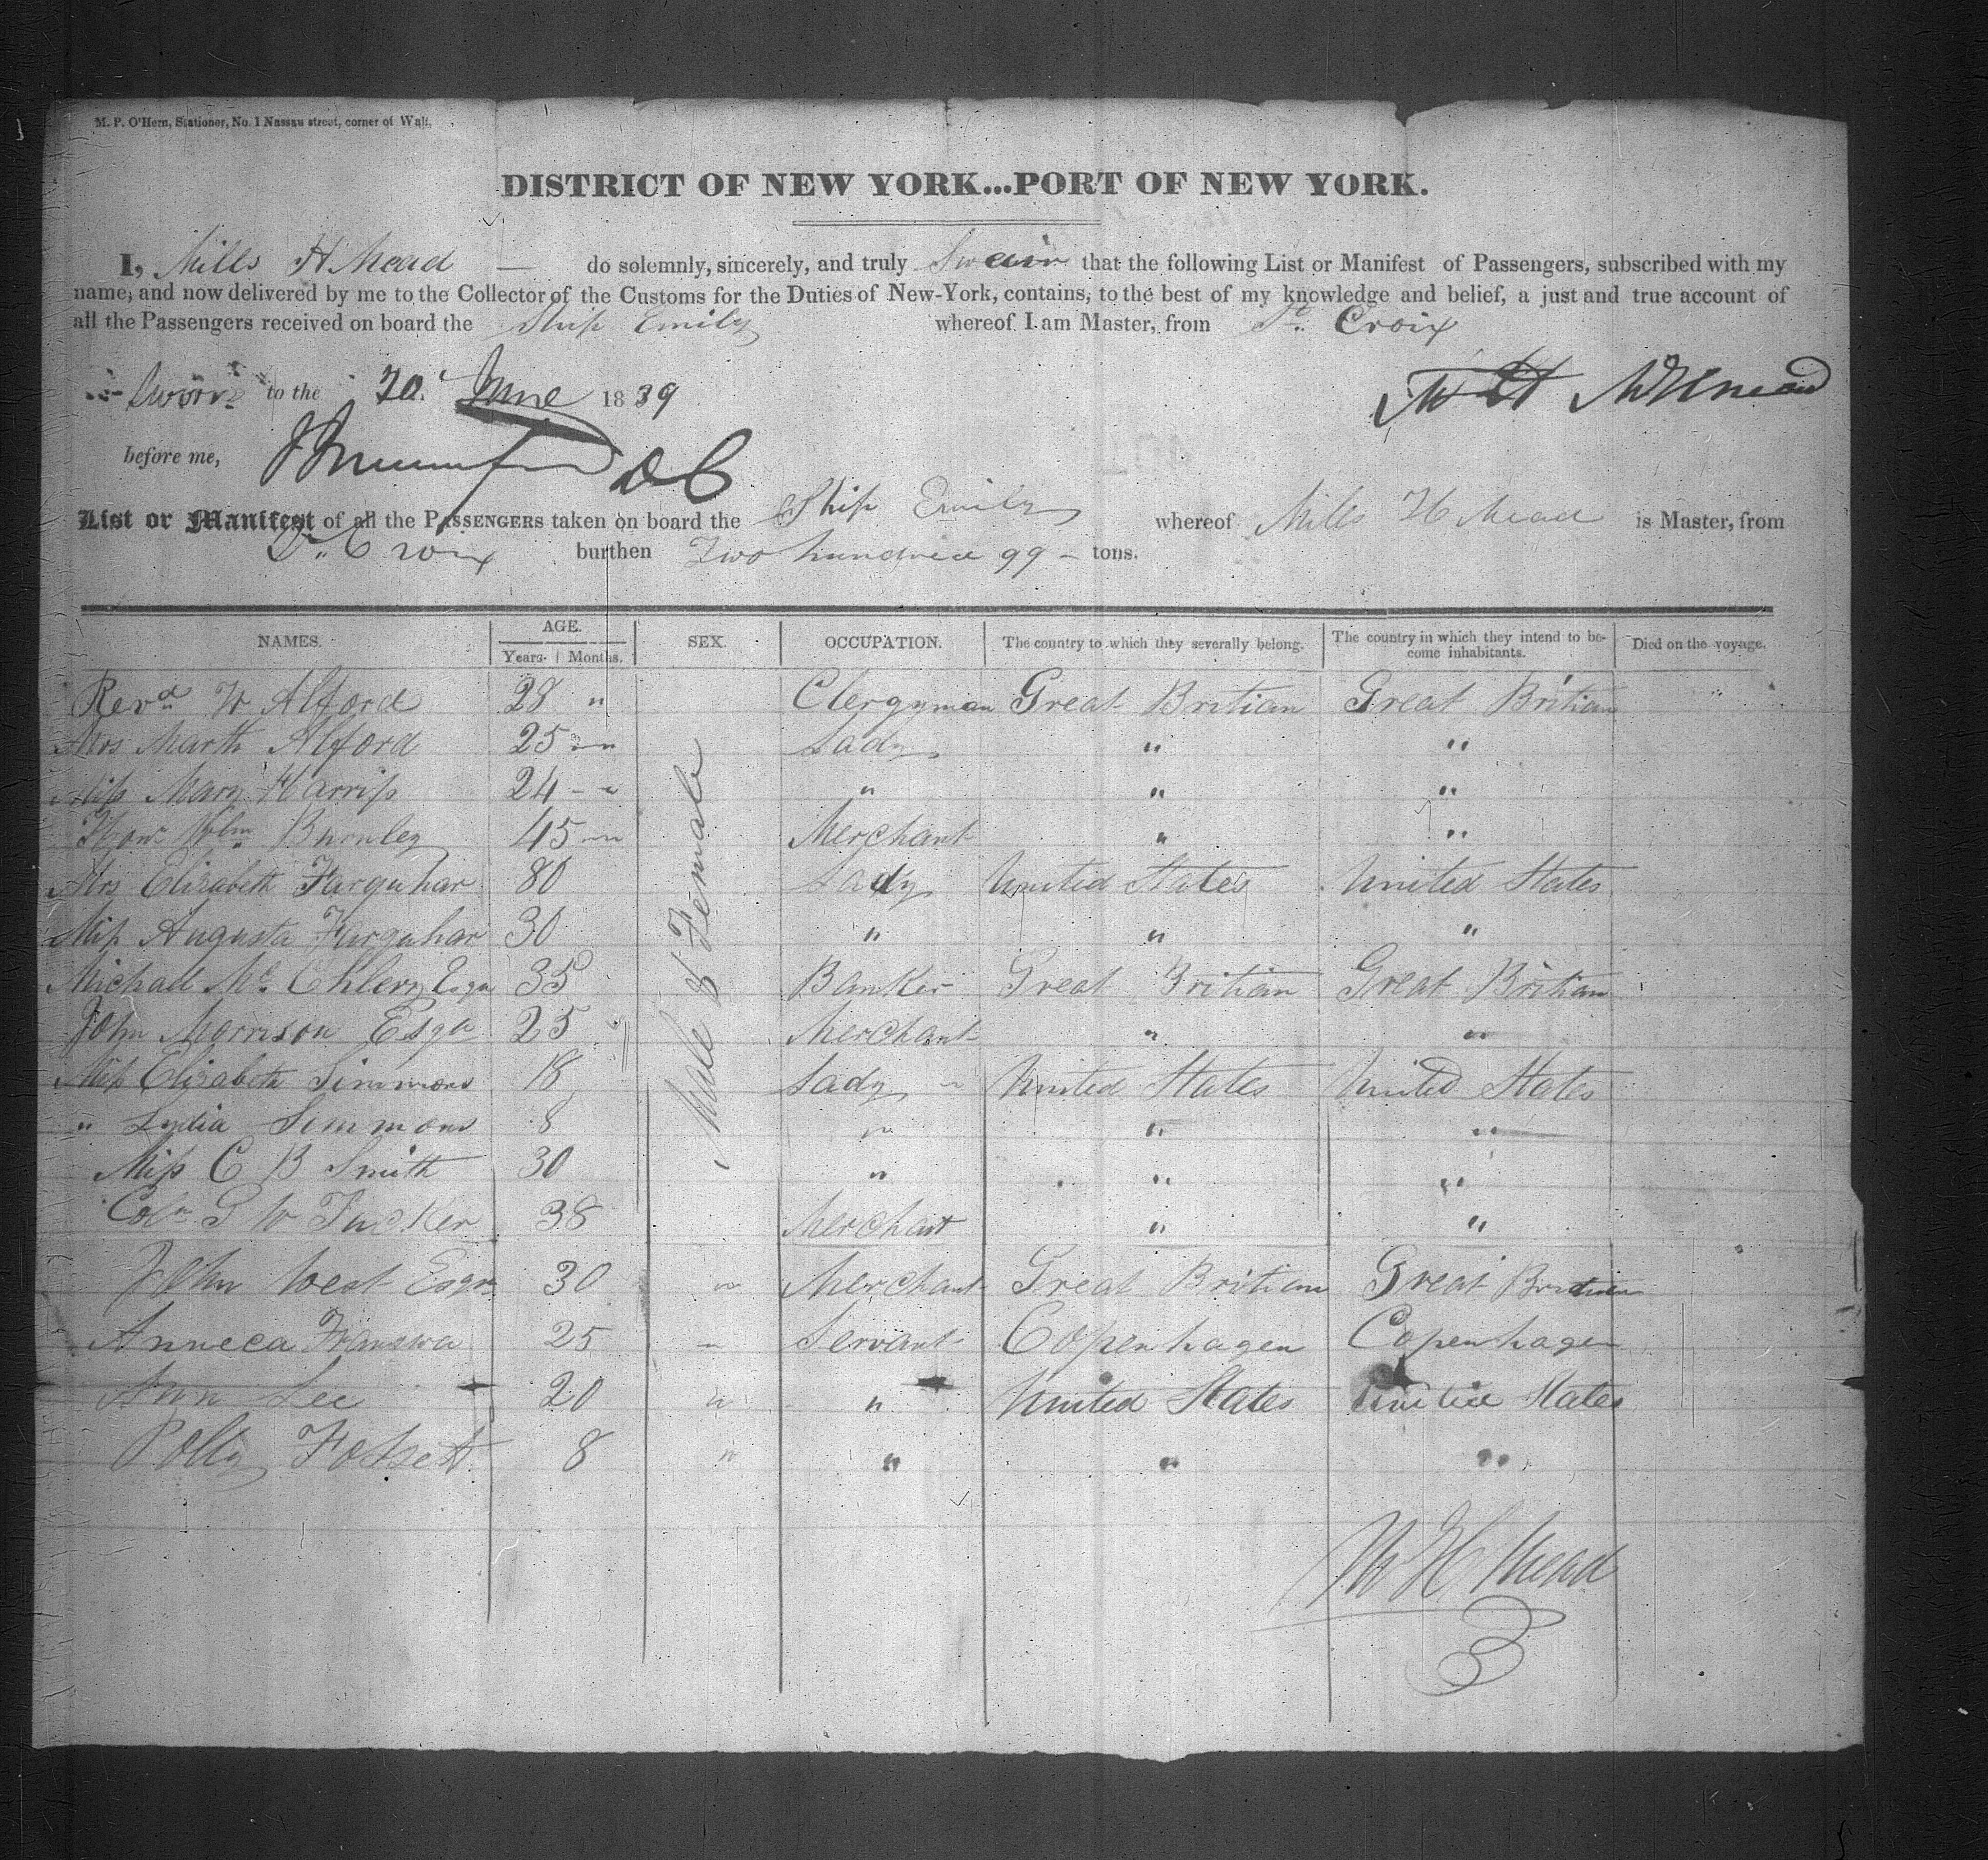 M. P. O'Hern, Stationer, No. 1 Nassau street, corner of Wall.
DISTRICT OF NEW YORK...PORT OF NEW YORK.
I, Mills H Mead — do solemnly, sincerely, and truly Swear that the following List or Manifest of Passengers, subscribed with my
name, and now delivered by me to the Collector of the Customs for the Duties of New-York, contains, to the best of my knowledge and belief, a just and true account of
all the Passengers received on board the Ship Emily whereof I am Master, from St. Croix
Sworn to the 20. June 1839
before me, DC
List or Manifest of all the PASSENGERS taken on board the Ship Emily whereof Mills H Mead is Master, from
St. Croix burthen Two hundred 99 – tons.
NAMES. AGE. Years. Months. SEX. OCCUPATION. The country to which they severally belong. The country in which they intend to become inhabitants. Died on the voyage.
Male & Female
Revd W Alford 28 " Clergyman Great Britian Great Britian
Mrs Marth Alford 25 " Lady " "
Miss Mary Harriss 24 - " " " "
Wlm Burnley 45 " Merchant " "
Mrs Elizabeth Farquhar 80 Lady United States United States
Miss Augusta Farquhar 30 " " "
Michael Mc Esqu 35 Banker Great Britian Great Britian
John Morrison Esqu 25 Merchant " "
Miss Elizabeth Simmons 18 Lady " United States United States
" Lydia Simmons 8 " " "
Miss C B Smith 30 " " "
Coln G W Tucker 38 Merchant " "
John West Esqr 30 " Merchant Great Britian Great Britian
Anneca 25 " Servant Copenhagen Copenhagen
Ann Lee 20 " " United States United States
Polly 8 " " " "
M H Mead